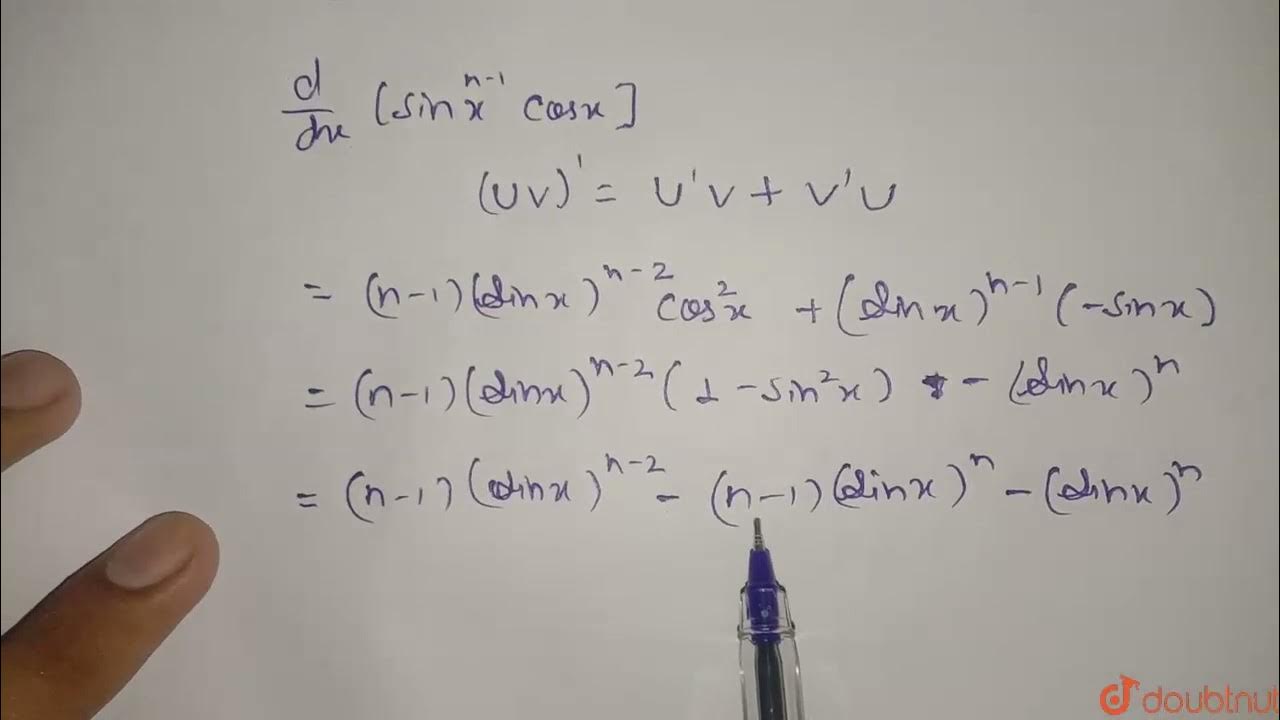 d/dx [sin^{n-1}x cosx]
(UV)' = U'V + V'U
= (n-1)(sinx)^{n-2} cos^2x + (sinx)^{n-1} (-sinx)
= (n-1)(sinx)^{n-2} (1-sin^2x) - (sinx)^n
= (n-1)(sinx)^{n-2} - (n-1)(sinx)^n - (sinx)^n
doubtnut